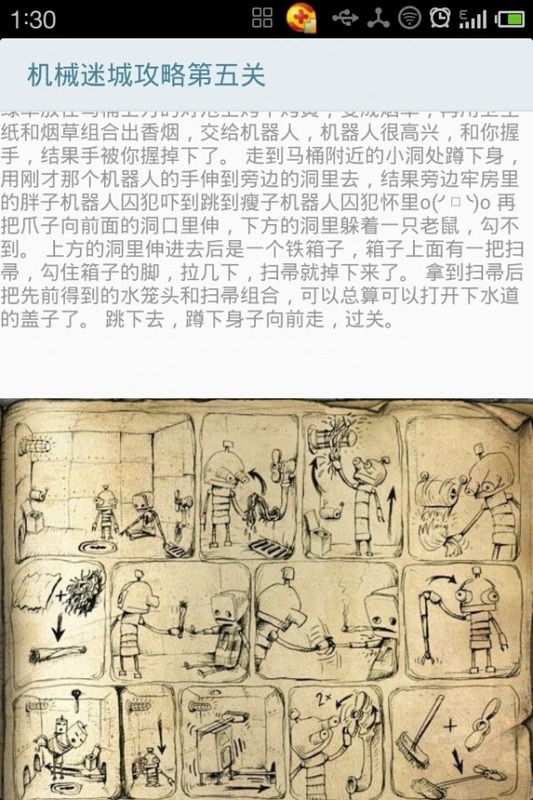 1:30
E
机械迷城攻略第五关
纸和烟草组合出香烟，交给机器人，机器人很高兴，和你握
手，结果手被你握掉下了。 走到马桶附近的小洞处蹲下身，
用刚才那个机器人的手伸到旁边的洞里去，结果旁边牢房里
的胖子机器人囚犯吓到跳到瘦子机器人囚犯怀里o(╯□╰)o 再
把爪子向前面的洞口里伸，下方的洞里躲着一只老鼠，勾不
到。 上方的洞里伸进去后是一个铁箱子，箱子上面有一把扫
帚，勾住箱子的脚，拉几下，扫帚就掉下来了。 拿到扫帚后
把先前得到的水笼头和扫帚组合，可以总算可以打开下水道
的盖子了。 跳下去，蹲下身子向前走，过关。
2×